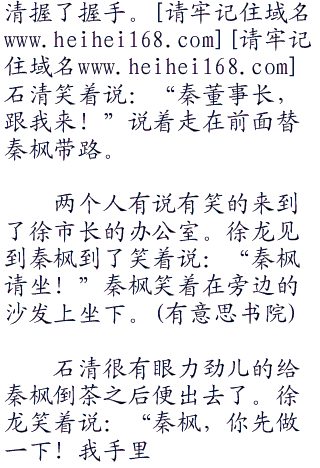 清握了握手。[请牢记住域名
www.heihei168.com][请牢记
住域名www.heihei168.com]
石清笑着说：“秦董事长，
跟我来！”说着走在前面替
秦枫带路。
两个人有说有笑的来到
了徐市长的办公室。徐龙见
到秦枫到了笑着说：“秦枫
请坐！”秦枫笑着在旁边的
沙发上坐下。(有意思书院)
石清很有眼力劲儿的给
秦枫倒茶之后便出去了。徐
龙笑着说：“秦枫，你先做
一下！我手里